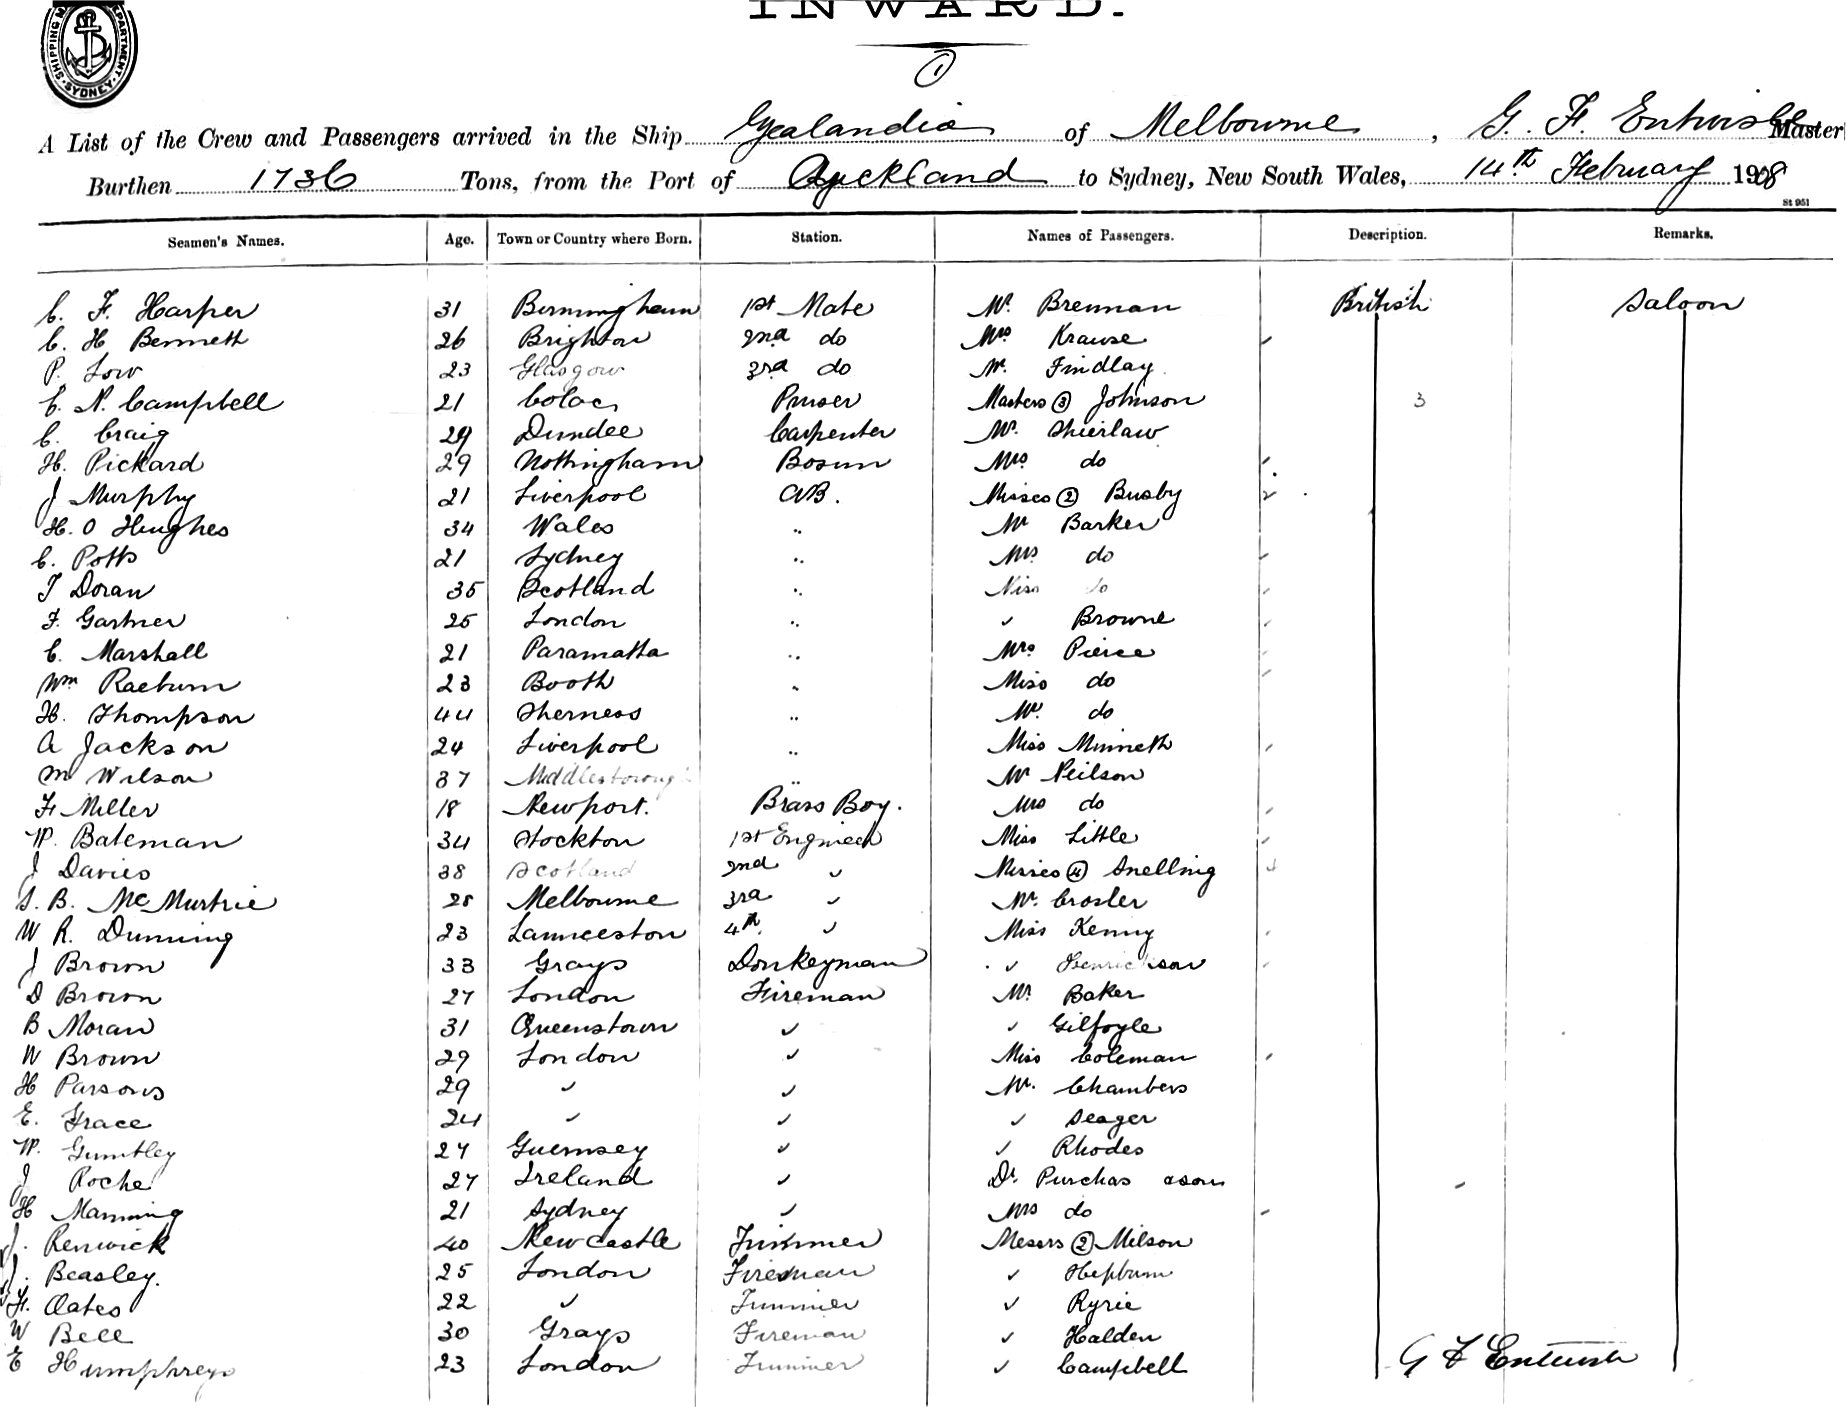 INWARD.
SHIPPING MASTER'S DEPARTMENT SYDNEY
1
A List of the Crew and Passengers arrived in the Ship Zealandia of Melbourne, G. F. Entwisle Master
Burthen 1736 Tons, from the Port of Auckland to Sydney, New South Wales, 14th February 1908
St 951
Seamen's Names. Age. Town or Country where Born. Station. Names of Passengers. Description. Remarks.
C. F. Harper 31 Birmingham 1st Mate Mr. Brennan British Saloon
C. H Bennett 26 Brighton 2nd do Mrs Krause
P. Low 23 Glasgow 3rd do Mr. Findlay
C. N. Campbell 21 Colac Purser Masters 3 Johnson 3
C. Craig 29 Dundee Carpenter Mr. Shierlaw
H. Pickard 29 Nottingham Bosun Mrs do
J Murphy 21 Liverpool AB. Misses 2 Busby 2
H. O Hughes 34 Wales " Mr Barker
C. Potts 21 Sydney " Mrs do
T Doran 35 Scotland " Miss do
F. Gartner 25 London " " Browne
C. Marshall 21 Paramatta " Mrs Pierce
Wm Raeburn 23 Booth " Miss do
H. Thompson 44 Sherness " Mr. do
A Jackson 24 Liverpool " Miss Minneth
M Wilson 37 Middlesborough " Mr Neilson
F Miller 18 Newport. Brass Boy. Mrs do
W. Bateman 34 Stockton 1st Engineer Miss Little
J Davies 38 Scotland 2nd " Misses 4 Snelling 4
S. B. McMurtrie 28 Melbourne 3rd " Mr. Crosler
W R. Dunning 23 Launceston 4th " Miss Kenny
J Brown 33 Grays Donkeyman " Henrickson
D Brown 27 London Fireman Mr Baker
B Moran 31 Queenstown " " Gilfoyle
W Brown 29 London " Miss Coleman
H Parsons 29 " " Mr. Chambers
E. Grace 24 " " " Seager
W. Gumtley 27 Guernsey " " Rhodes
J Roche 27 Ireland " Dr. Purchas
H Manning 21 Sydney " Mrs do
J. Renwick 40 Newcastle Trimmer Messrs 2 Milson
J. Beasley. 25 London Fireman " Hepburn
F. Oates 22 " Trimmer " Ryrie
W Bell 30 Grays Fireman " Halden
E Humphreys 23 London Trimmer " Campbell
G F Entwisle